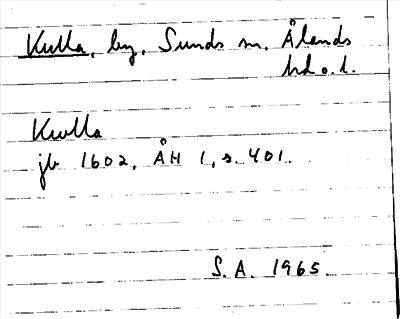 Kulla, by, Sunds sn, Ålands
hd o. l.
Kwlla
jb 1602, ÅH 1, s. 401.
S. A. 1965